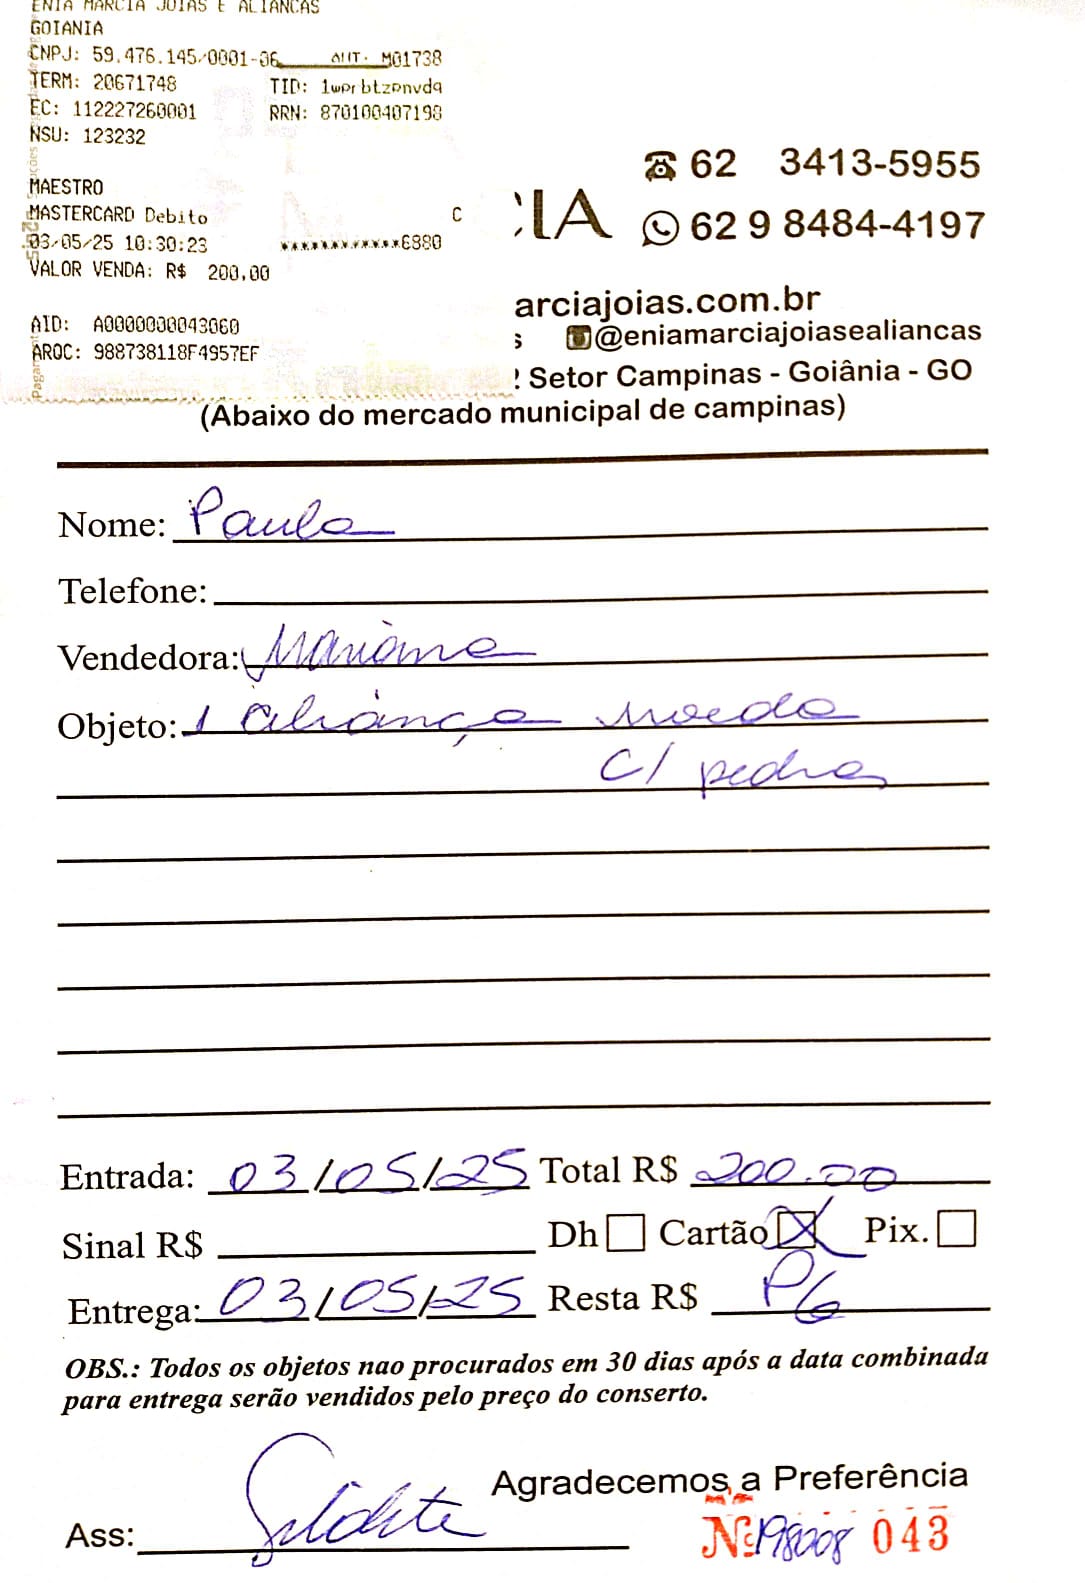 ENIA MARCIA JOIAS E ALIANCAS
GOIANIA
CNPJ: 59.476.145/0001-06 AUT: M01738
TERM: 20671748 TID: 1wprbtzpnvdq
EC: 112227260001 RRN: 870100407190
NSU: 123232
MAESTRO
MASTERCARD Debito C
03/05/25 10:30:23 ************6880
VALOR VENDA: R$ 200,00
AID: A0000000043060
AROC: 988738118F4957EF
62 3413-5955
CIA 62 9 8484-4197
arciajoias.com.br
s @eniamarciajoiasealiancas
Setor Campinas - Goiânia - GO
(Abaixo do mercado municipal de campinas)
Nome: Paula
Telefone:
Vendedora: Mariana
Objeto: 1 aliança moeda
c/ pedras
Entrada: 03/05/25 Total R$ 200.00
Sinal R$ Dh Cartão X Pix.
Entrega: 03/05/25 Resta R$ PG
OBS.: Todos os objetos nao procurados em 30 dias após a data combinada
para entrega serão vendidos pelo preço do conserto.
Agradecemos a Preferência
Ass:
Nº 043